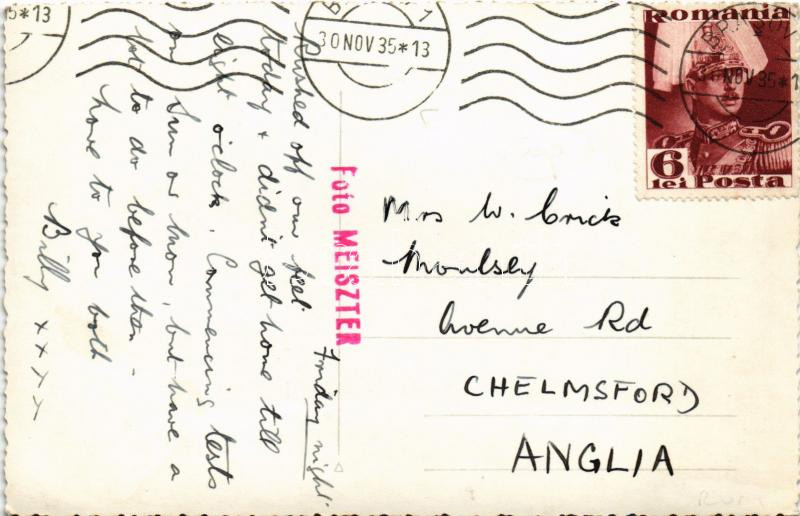 Friday night.
Rushed off our feet
today & didn't get home till
eight o'clock. Commencing tests
on Sun or Mon, but have a
lot to do before then -
Love to you both
Billy x x x x
Foto MEISZTER
Mrs W. Crick
Moulsey
Avenue Rd
CHELMSFORD
ANGLIA
5*13
30 NOV 35*13
1
Romania
30 NOV 35*1
6
lei Posta